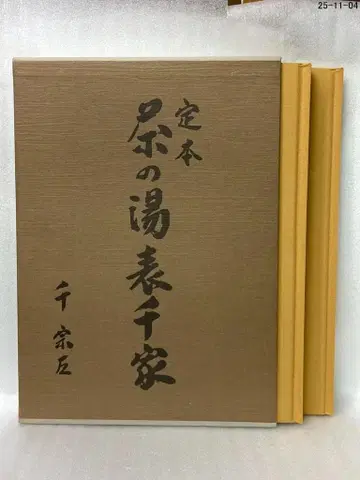 25-11-04
定本
茶の湯表千家
千宗左